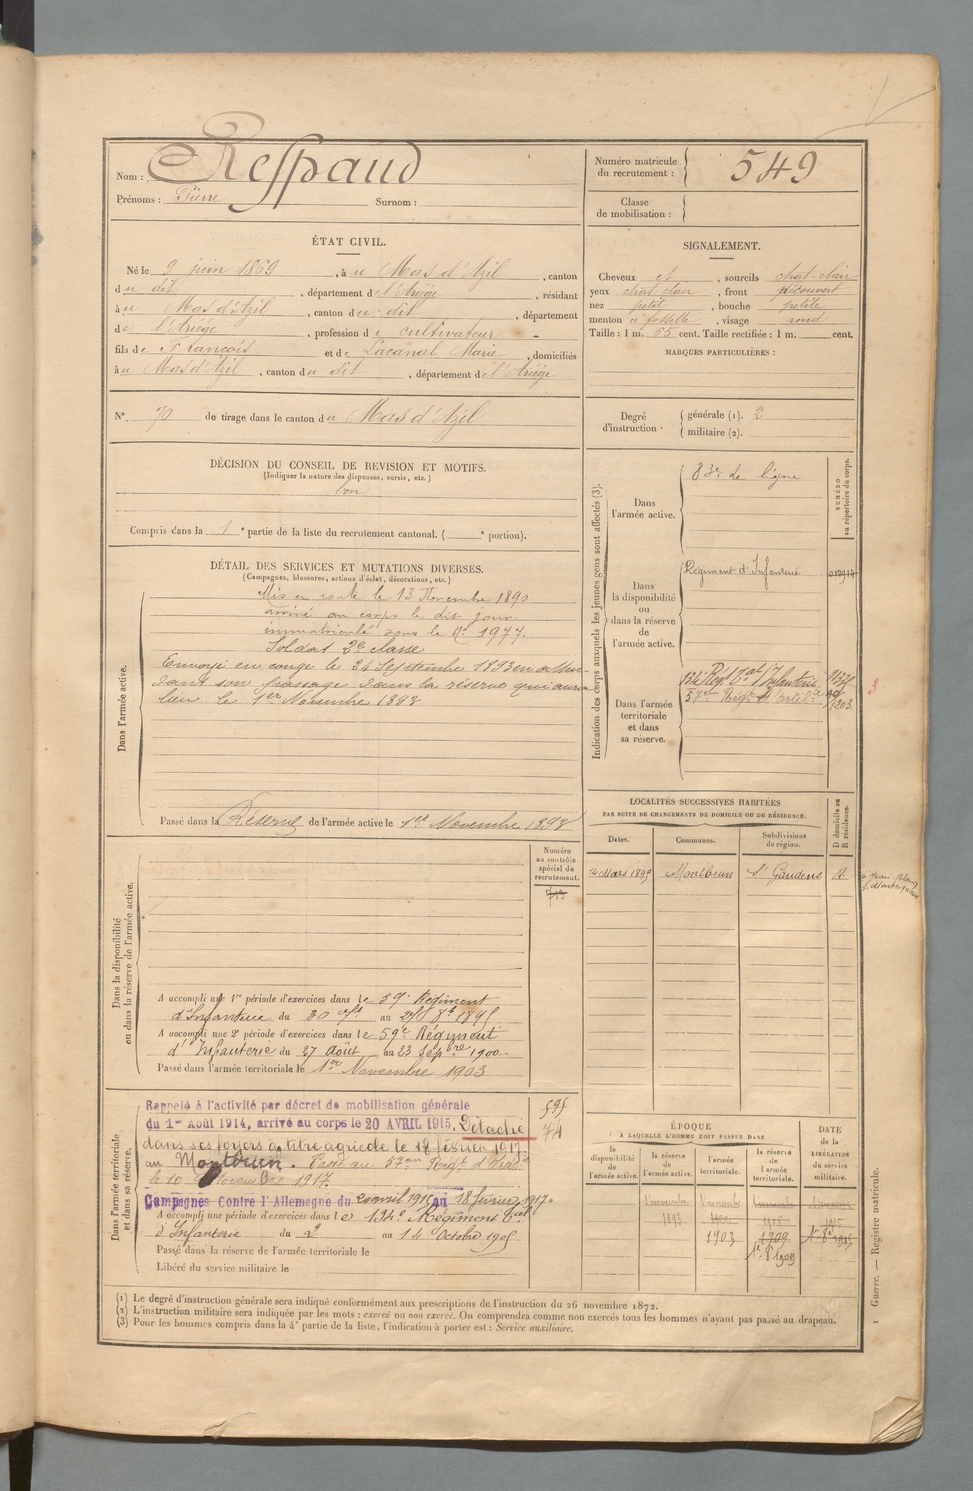 Nom : Respaud
Prénoms : Pierre Surnom :
Numéro matricule du recrutement : 549
Classe de mobilisation :
ÉTAT CIVIL.
Né le 9 juin 1869, à u Mas d'Azil, canton
du dit, département de l'Ariège, résidant
à u Mas d'Azil, canton du dit, département
de l'Ariège, profession de cultivateur
fils de François et de Lacanal Marie, domiciliés
à u Mas d'Azil, canton du dit, département de l'Ariège
SIGNALEMENT.
Cheveux et, sourcils chat-clair
yeux chat clair, front découvert
nez petit, bouche petite
menton à fossette, visage rond
Taille : 1 m. 65 cent. Taille rectifiée : 1 m. cent.
MARQUES PARTICULIÈRES :
N° 70 de tirage dans le canton du Mas d'Azil
Degré d'instruction
générale (1). 2
militaire (2).
DÉCISION DU CONSEIL DE REVISION ET MOTIFS.
(Indiquer la nature des dispenses, sursis, etc.)
bon
Compris dans la 1 e partie de la liste du recrutement cantonal. ( e portion).
DÉTAIL DES SERVICES ET MUTATIONS DIVERSES.
(Campagnes, blessures, actions d'éclat, décorations, etc.)
Dans l'armée active.
Mis en route le 13 Novembre 1890
arrivé au corps le dit jour
immatriculé sous le N° 1977.
Soldat 2e classe
Envoyé en congé le 24 Septembre 1893 en atten-
dant son passage dans la réserve qui aura
lieu le 1er Novembre 1893
Passé dans la Réserve de l'armée active le 1er Novembre 1893
Indication des corps auxquels les jeunes gens sont affectés (3).
NUMÉRO au répertoire du corps.
Dans l'armée active.
83e de ligne
Dans la disponibilité ou dans la réserve de l'armée active.
Régiment d'Infanterie
Dans l'armée territoriale et dans sa réserve.
134 Rég. T.al d'Infanterie
57me Rég.t d'artel.ie
1203
3
LOCALITÉS SUCCESSIVES HABITÉES
PAR SUITE DE CHANGEMENTS DE DOMICILE OU DE RÉSIDENCE.
D domicile ou R résidence.
Dates. Communes. Subdivisions de région.
24 Mars 1895 Montbrun St Gaudens R
Dans la disponibilité ou dans la réserve de l'armée active.
Numéro au contrôle spécial du recrutement.
715
A accompli une 1re période d'exercices dans le 59e Régiment
d'Infanterie du 30 au 1895
A accompli une 2e période d'exercices dans le 59e Régiment
d'Infanterie du 27 Août au 23 Sepbre 1900
Passé dans l'armée territoriale le 1er Novembre 1903
Dans l'armée territoriale et dans sa réserve.
Rappelé à l'activité par décret de mobilisation générale
du 1er Août 1914, arrivé au corps le 20 AVRIL 1915. Détaché
dans ses foyers à titre agricole le 18 février 1917
au Montbrun. Passé au 57me Régt d'Artie
le 10 Novembre 1917.
Campagnes Contre l'Allemagne du 20 avril 1915 au 18 février 1917.
A accompli une période d'exercices dans le 134e Régiment T.al
d'Infanterie du 2 au 14 Octobre 1905
Passé dans la réserve de l'armée territoriale le
Libéré du service militaire le
595
74
ÉPOQUE
À LAQUELLE L'HOMME DOIT PASSER DANS
la disponibilité de l'armée active.
la réserve de l'armée active.
l'armée territoriale.
la réserve de l'armée territoriale.
DATE de la LIBÉRATION du service militaire.
1 novembre 1893
1 novembre 1903
1909
1915
(1) Le degré d'instruction générale sera indiqué conformément aux prescriptions de l'instruction du 26 novembre 1872.
(2) L'instruction militaire sera indiquée par les mots : exercé ou non exercé. On comprendra comme non exercés tous les hommes n'ayant pas passé au drapeau.
(3) Pour les hommes compris dans la 4e partie de la liste, l'indication à porter est : Service auxiliaire.
1 Guerre. — Registre matricule.